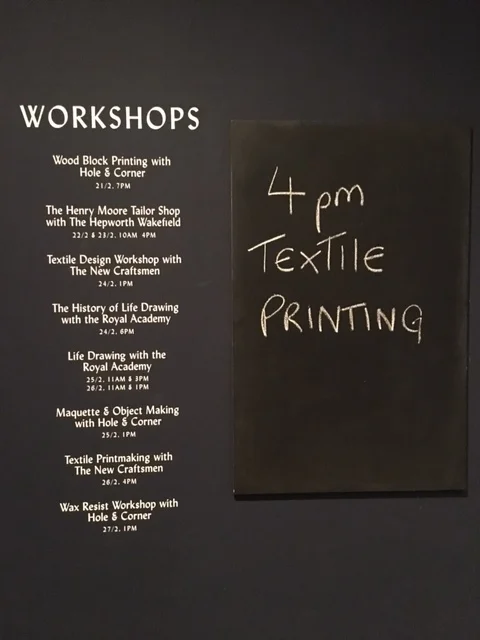 WORKSHOPS
Wood Block Printing with
Hole & Corner
21/2, 7PM
The Henry Moore Tailor Shop
with The Hepworth Wakefield
22/2 & 23/2, 10AM 4PM
Textile Design Workshop with
The New Craftsmen
24/2, 1PM
The History of Life Drawing
with the Royal Academy
24/2, 6PM
Life Drawing with the
Royal Academy
25/2, 11AM & 3PM
26/2, 11AM & 1PM
Maquette & Object Making
with Hole & Corner
25/2, 1PM
Textile Printmaking with
The New Craftsmen
26/2, 4PM
Wax Resist Workshop with
Hole & Corner
27/2, 1PM
4pm
TEXTILE
PRINTING